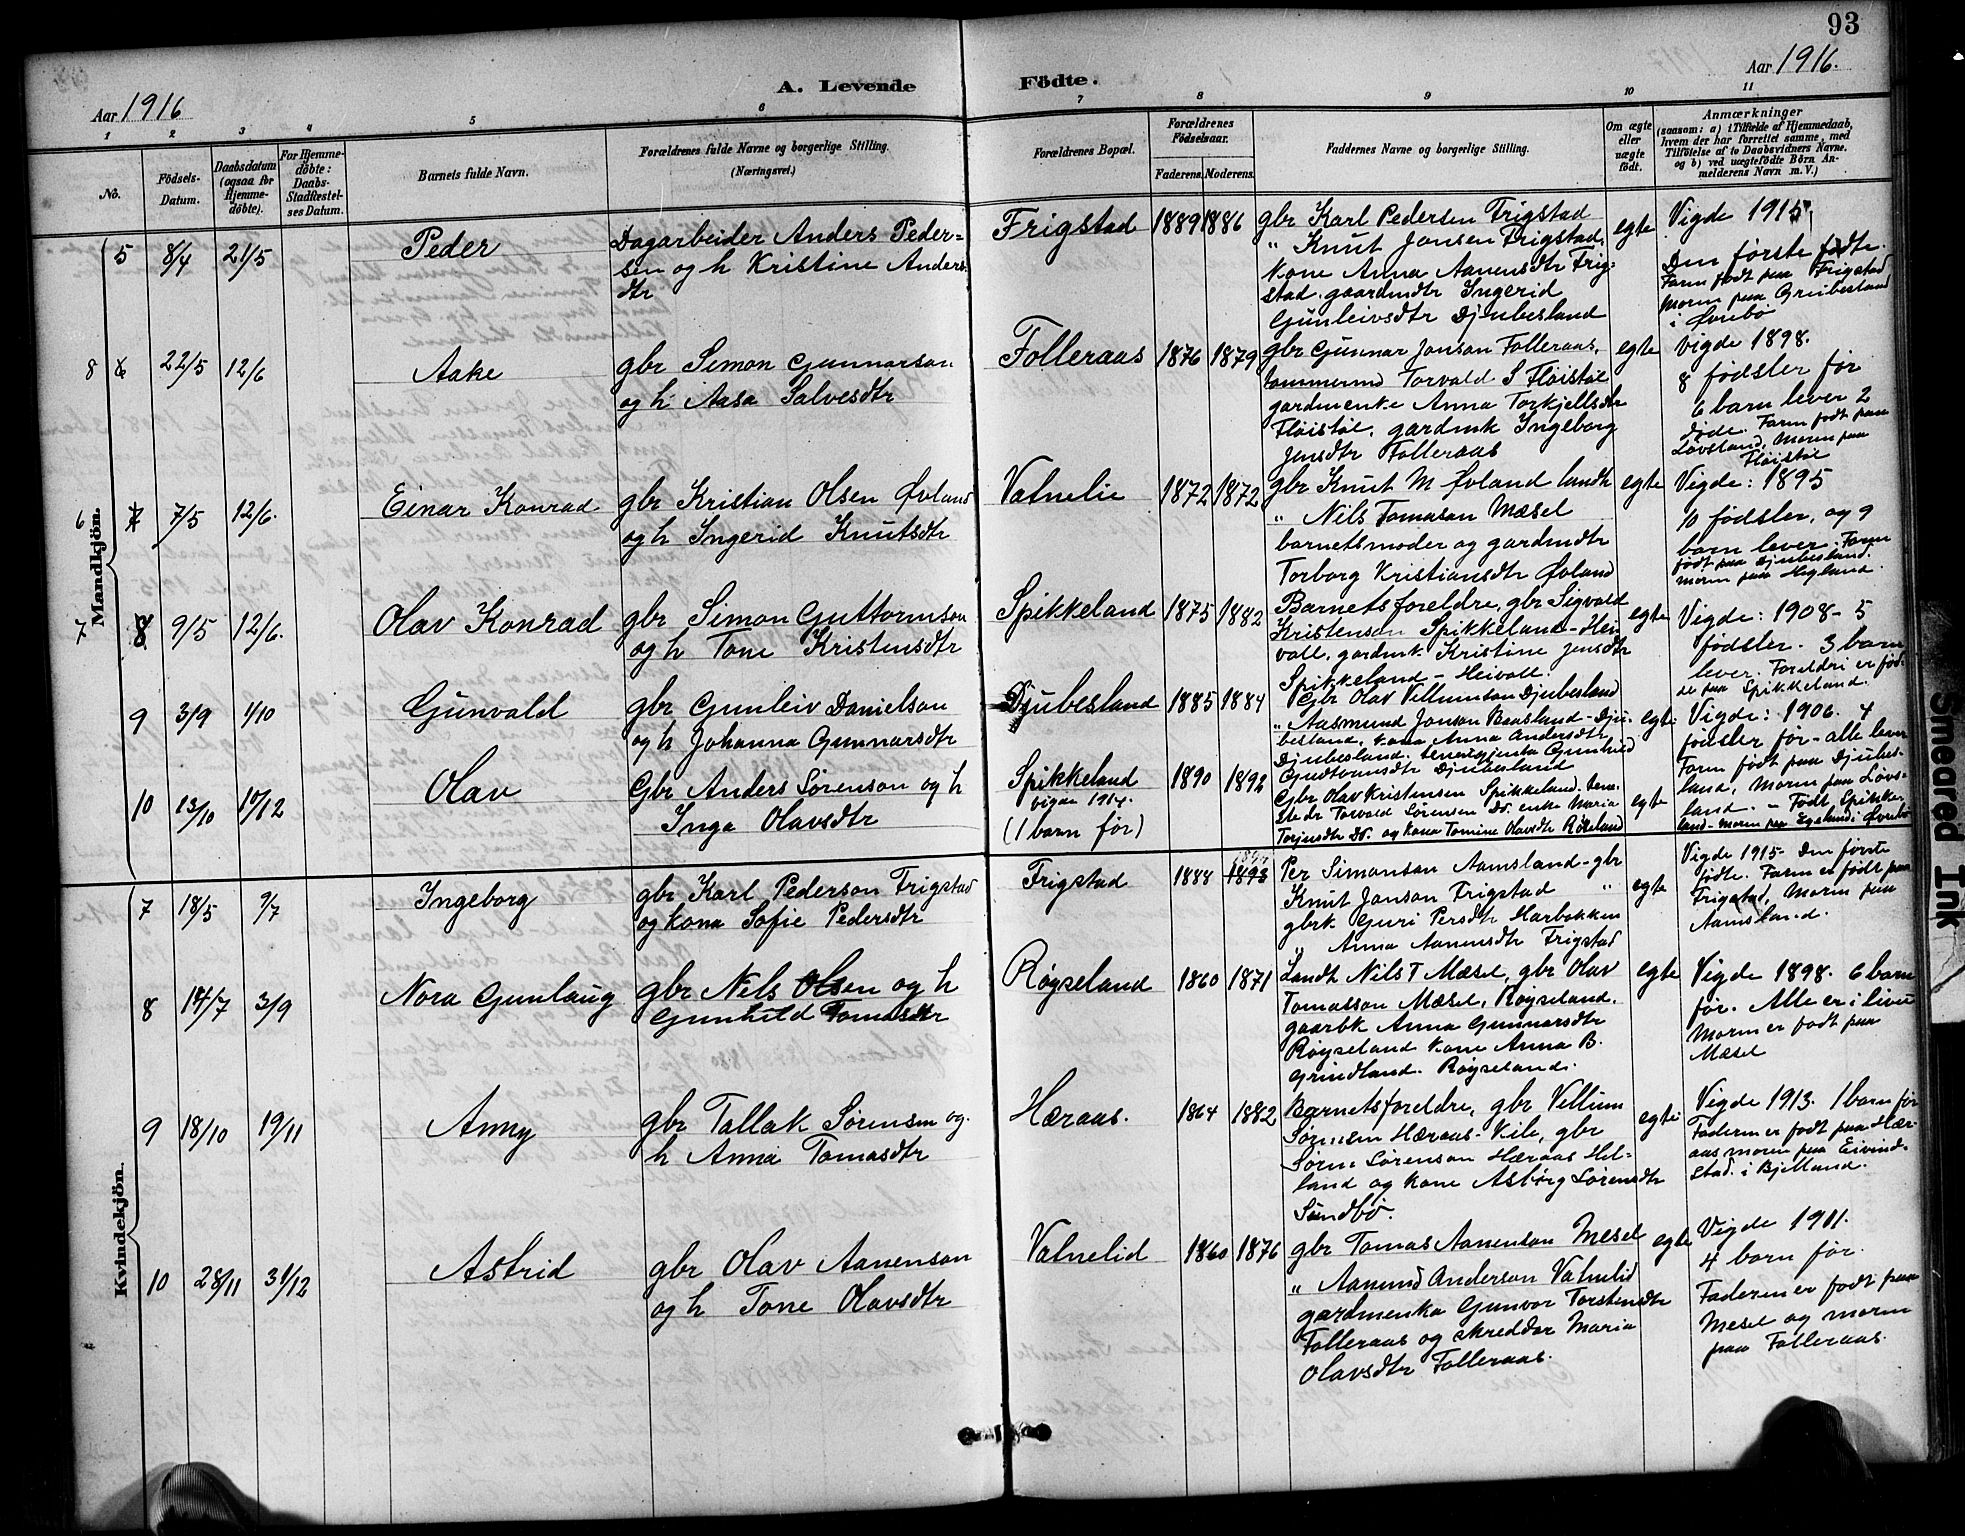 93
Aar 1916
A. Levende Födte.
Aar 1916.
1 2 3 4 5 6 7 8 9 10 11
No.
Födsels-
Datum.
Daabsdatum
(ogsaa for
Hjemme-
döbte).
For Hjemme-
döbte:
Daabs-
Stadfæstel-
ses Datum.
Barnets fulde Navn.
Forældrenes fulde Navne og borgerlige Stilling.
(Næringsvei.)
Forældrenes Bopæl.
Forældrenes
Födselsaar.
Faderens. Moderens.
Faddernes Navne og borgerlige Stilling.
Om ægte
eller
uægte
födt.
Anmærkninger
(saasom: a) i Tilfælde af Hjemmedaab,
hvem der har forrettet samme, med
Tilföielse af to Daabsvidners Navne.
og b) ved uægtefödte Börn An-
melderens Navn m. V.)
Mandkjön.
5 8/4 21/5
Peder
Dagarbeider Anders Peder-
sen og h Kristine Anders
dtr
Frigstad
1889 1886
gbr Karl Pedersen Frigstad
" Knut Jonsen Frigstad,
Kone Anna Aanensdtr Frig-
stad. gaardmdtr Ingerid
Gunleivsdtr Djubesland
egte
Vigde 1915,
Den første fødte.
Farm født paa Frigstad
Morm paa Grubesland
i Øvrebø
8 22/5 12/6
Aake
gbr Simon Gunnarson
og h. Aasa Salvesdtr
Folleraas
1876 1879
gbr Gunnar Jonson Folleraas,
tømmermd Torvald S Fløistøl
gardmenke Anna Torkjellsdtr
Fløistøl, gardmk Ingeborg
Jensdtr Folleraas
egte
Vigde 1898.
8 fødsler før
6 barn lever 2
døde. Farm født paa
Løvsland, Morm paa
Fløistøl
6 7 7/5 12/6.
Einar Konrad
gbr Kristian Olsen Øvland
og h Ingerid Knutsdtr
Vatnelie
1872 1872
gbr Knut M Øvland landh
" Nils Tomason Mæsel
barnetsmoder og gardmdtr
Torborg Kristiansdtr Øvland
egte
Vigde: 1895
10 fødsler, og 9
barn lever. Farm
født paa Djubesland.
morm paa Hegland.
7 8 9/5 12/6.
Olav Konrad
gbr Simon Guttormson
og h Tone Kristensdtr
Spikkeland
1875 1882
Barnets foreldre, gbr Sigvald
Kristenson Spikkeland-Hei
vall, gardmk. Kristine Jensdtr
Spikkeland - Heivoll.
egte
Vigde: 1908- 5
fødsler. 3 barn
lever. Foreldri er fød-
de paa Spikkeland.
9 3/9 1/10
Gunvald
gbr Gunleiv Danielson
og h Johanna Gunnarsdtr
Djubesland
1885 1884
Gbr Olav Villumson Djubesland
" Aasmund Jonson Baasland-Dju-
besland, Kona Anna Andersdtr,
Djubesland. Gunhild
Gudtormsdtr Djubesland
egte
Vigde: 1906. 4
fødsler før - alle lever
Farm født paa Djubes-
land, Morm paa Løvs-
land.
10 13/10 17/12
Olav
Gbr Anders Sørenson og h
Inga Olavsdtr
Spikkeland
vigde 1914.
(1 barn før)
1890 1892
Gbr Olav Kristensen Spikkeland.
Torvald Sørensen Do. enke Maria
Torjusdtr Do. og kona Tomine Olavsdtr Røiseland
egte
- Født Spikke-
land- morm paa Egeland i Øvrebø
Kvindekjön.
7 18/5 9/7
Ingeborg
gbr Karl Pederson Frigstad
og kona Sofie Pedersdtr
Frigstad
1884 1893
Per Simonson Aamsland-gbr
Knut Jonson Frigstad "
gbrk Guri Persdtr Harbakken
" Anna Aanensdtr Frigstad
egte
Vigde 1915- Den første
fødte. Farm er født paa
Frigstad, Morm paa
Aamsland.
8 14/7 3/9
Nora Gunlaug
gbr Nils Olsen og h
Gunhild Tomasdtr
Røyseland
1860 1871
Landh Nils T Mæsel, gbr Olav
Tomasson Mæsel, Røyseland,
gaarbk Anna Gunnarsdtr
Røyseland kone Anna B.
Grindland. Røyseland.
egte
Vigde 1898. 6 barn
før. Alle er i live
Morm er født paa
Mæsel
9 18/10 19/11
Anny
gbr Tallak Sørensen og
h Anna Tomasdtr
Hæraas.
1864 1882
Barnets foreldre, gbr Vellum
Sørensen Hæraas-Kile, gbr
Søren Sørenson Hæraas Hel-
land og kone Asbørg Sørensdtr
Sundbø.
egte
Vigde 1913. 1 barn før
Faderen er født paa Hær-
aas moren paa Eivind-
stad. i Bjelland.
10 28/11 31/12
Astrid
gbr Olav Aanenson
og h Tone Olavsdtr
Vatnelid
1860 1876
gbr Tomas Aanenson Mesel
" Aanund Anderson Vatnelid
gardmenka Gunvor Torstensdtr
Folleraas og skreddar Maria
Olavsdtr Folleraas.
egte
Vigde 1901.
4 born før.
Faderen er født paa
Mesel og morm
paa Folleraas.
Smeared Ink